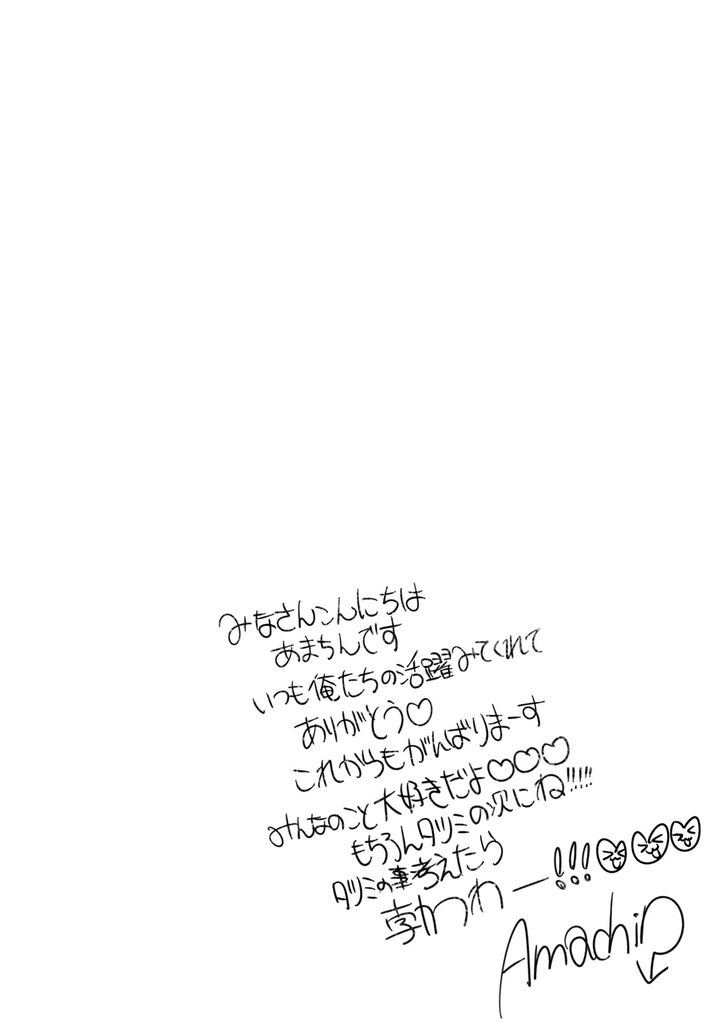 みなさんこんにちは
あまちんです
いつも俺たちの活躍みてくれて
ありがとう♡
これからもがんばりまーす
みんなのこと大好きだよ♡♡♡
もちろんタツミの次にね!!!!!
タツミの事考えたら
勃つわー!!!
Amachin